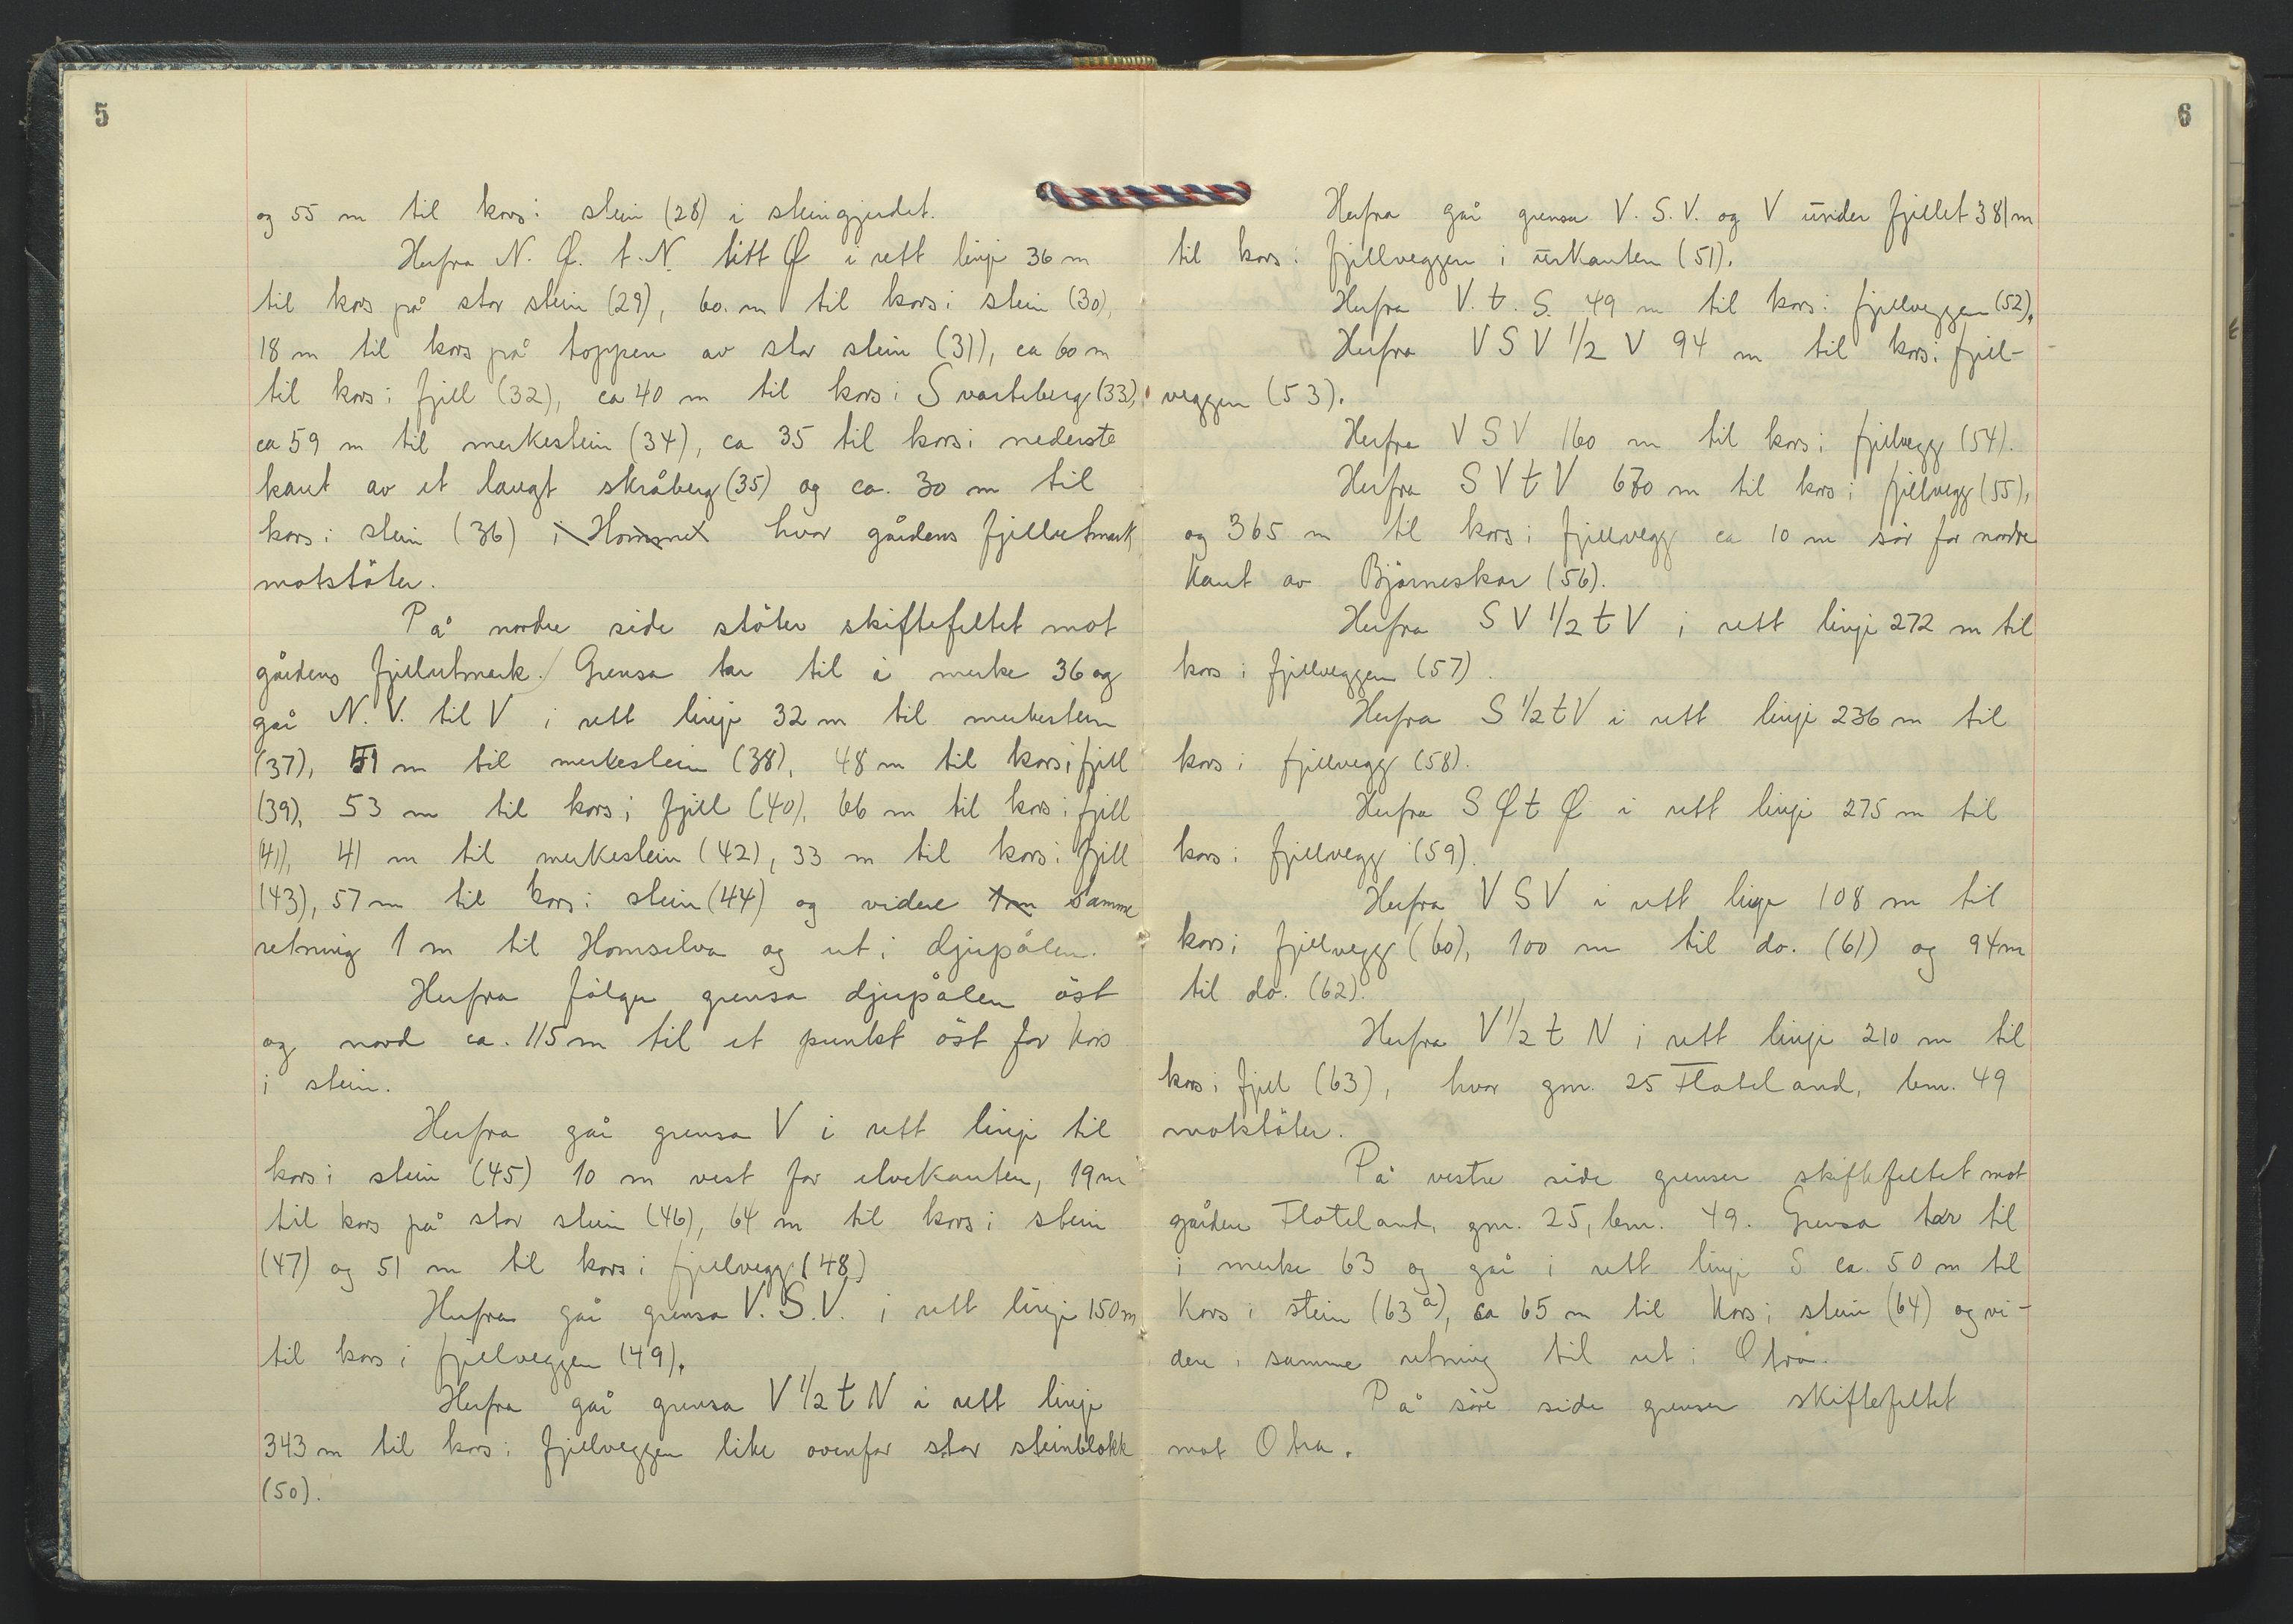 5
og 55 m til kors i stein (28) i steingjerdet.
Herfra N. Ø. t. N. litt Ø i rett linje 36 m
til kors på stor stein (29), 60. m til kors i stein (30),
18 m til kors på toppen av stor stein (31), ca 60 m
til kors i fjell (32), ca 40 m til kors i Svarteberg (33),
ca 59 m til merkestein (34), ca 35 til kors i nederste
kant av et langt skråberg (35) og ca. 30 m til
kors i stein (36) i Hommet hvor gårdens fjellutmark
motstöter.
På nordre side stöter skiftefeltet mot
gårdens fjellutmark. Grensa tar til i merke 36 og
går N. V. til V i rett linje 32 m til merkestein
(37), 51 m til merkestein (38), 48 m til kors i fjell
(39), 53 m til kors i fjell (40), 66 m til kors i fjell
(41), 41 m til merkestein (42), 33 m til kors i fjell
(43), 57 m til kors i stein (44) og videre samme
retning 1 m til Homselva og ut i djupålen.
Herfra fölger grensa djupålen öst
og nord ca. 115 m til et punkt öst for kors
i stein.
Herfra går grensa V i rett linje til
kors i stein (45) 10 m vest for elvekanten, 19 m
til kors på stor stein (46), 64 m til kors i stein
(47) og 51 m til kors i fjellvegg (48)
Herfra går grensa V. S. V. i rett linje 150 m
til kors i fjellveggen (49).
Herfra går grensa V 1/2 t N i rett linje
343 m til kors i fjellveggen like ovenfor stor steinblokk
(50).
6
Herfra går grensa V. S. V. og V under fjellet 381 m
til kors i fjellveggen i urkanten (51).
Herfra V. t. S. 49 m til kors i fjellveggen (52).
Herfra V S V 1/2 V 94 m til kors i fjell-
veggen (53).
Herfra V S V 160 m til kors i fjellvegg (54).
Herfra S V t V 670 m til kors i fjellvegg (55),
og 365 m til kors i fjellvegg ca 10 m sör for nordre
kant av Björneskar (56).
Herfra S V 1/2 t V i rett linje 272 m til
kors i fjellveggen (57).
Herfra S 1/2 t V i rett linje 236 m til
kors i fjellvegg (58).
Herfra S Ø t Ø i rett linje 275 m til
kors i fjellvegg (59).
Herfra V S V i rett linje 108 m til
kors i fjellvegg (60), 100 m til do. (61) og 94 m
til do. (62).
Herfra V 1/2 t N i rett linje 210 m til
kors i fjell (63), hvor gnr. 25 Flateland, bnr. 49
motstöter.
På vestre side grenser skiftefeltet mot
gården Flateland, gnr. 25, bnr. 49. Grensa tar til
i merke 63 og går i rett linje S ca. 50 m til
kors i stein (63 a), ca 65 m til kors i stein (64) og vi-
dere i samme retning til ut i Otra.
På söre side grenser skiftefeltet
mot Otra.